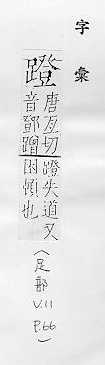 字彙
蹬
唐亙切
音鄧蹭
蹬失道又
困頓也
(足部
V.11
P.66)